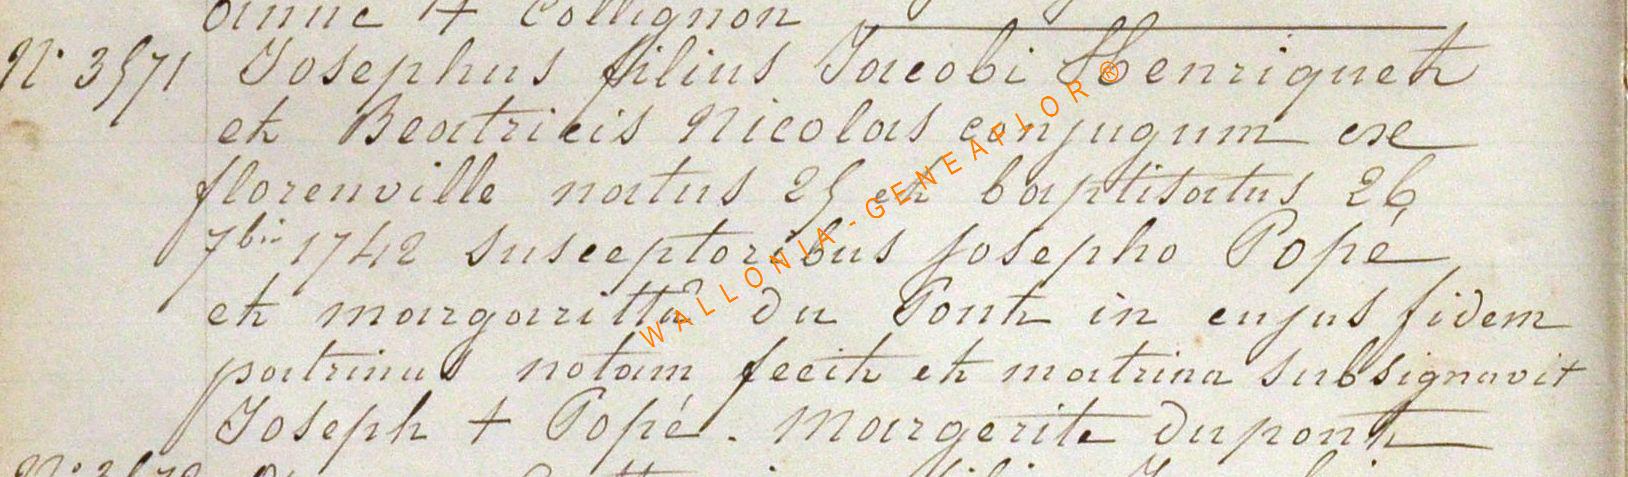 Anne + Collignon
N° 3571 Josephus filius Jacobi Henriquet
et Beatricis Nicolas conjugum ex
florenville natus 25 et baptisatus 26
7bris 1742 susceptoribus josepho Popé
et margaritta du Pont in cujus fidem
patrinus notam fecit et matrina subsignavit
Joseph + Popé. Margerite dupont
WALLONIA-GENEAFLOR®